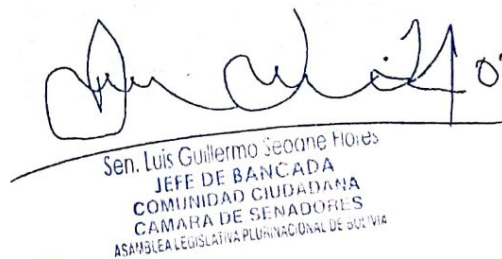 Sen. Luis Guillermo Seoane Flores
JEFE DE BANCADA
COMUNIDAD CIUDADANA
CAMARA DE SENADORES
ASAMBLEA LEGISLATIVA PLURINACIONAL DE BOLIVIA